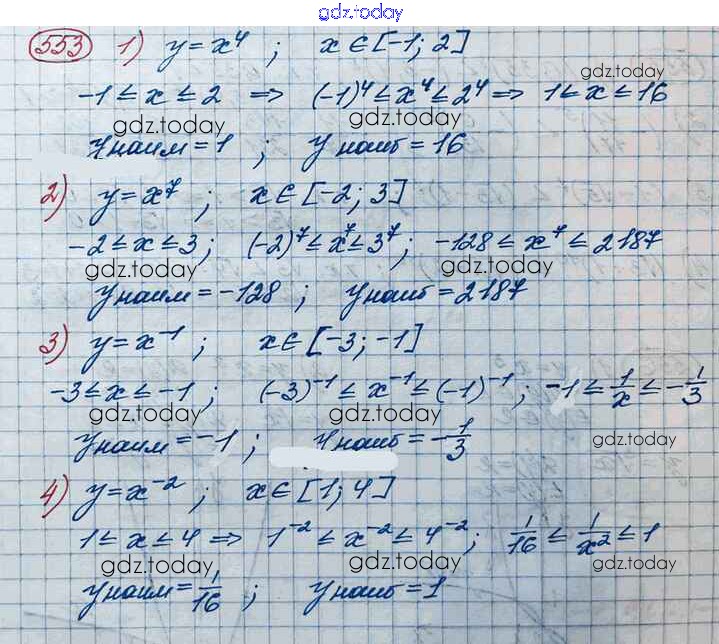 gdz.today
553 1) y = x⁴ ; x ∈ [-1; 2]
gdz.today
-1 ≤ x ≤ 2 => (-1)⁴ ≤ x⁴ ≤ 2⁴ => 1 ≤ x ≤ 16
gdz.today gdz.today
Yнаим = 1 ; Yнаиб = 16
2) y = x⁷ ; x ∈ [-2; 3]
-2 ≤ x ≤ 3; (-2)⁷ ≤ x⁷ ≤ 3⁷; -128 ≤ x⁷ ≤ 2187
gdz.today gdz.today
Yнаим = -128 ; Yнаиб = 2187
3) y = x⁻¹ ; x ∈ [-3; -1]
-3 ≤ x ≤ -1 ; (-3)⁻¹ ≤ x⁻¹ ≤ (-1)⁻¹ ; -1 ≤ 1/x ≤ -1/3
gdz.today gdz.today gdz.today
Yнаим = -1 ; Yнаиб = -1/3
4) y = x⁻² ; x ∈ [1; 4]
1 ≤ x ≤ 4 => 1⁻² ≤ x⁻² ≤ 4⁻² ; 1/16 ≤ 1/x² ≤ 1
gdz.today gdz.today
Yнаим = 1/16 ; Yнаиб = 1